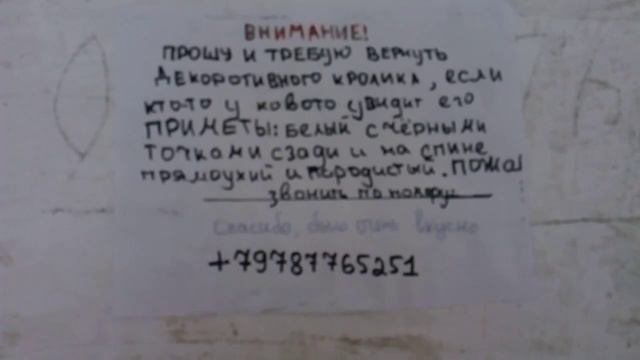 ВНИМАНИЕ!
ПРОШУ И ТРЕБУЮ ВЕРНУТЬ
ДЕКОРОТИВНОГО КРОЛИКА, ЕСЛИ
КТО-ТО У КОВОТО УВИДИТ ЕГО
ПРИМЕТЫ: БЕЛЫЙ С ЧЁРНЫМИ
ТОЧКАМИ СЗАДИ И НА СПИНЕ
ПРЯМОУХИЙ И ПОРОДИСТЫЙ. ПОЖАЛ
ЗВОНИТЬ ПО
Спасибо, было очень вкусно
+79787765251